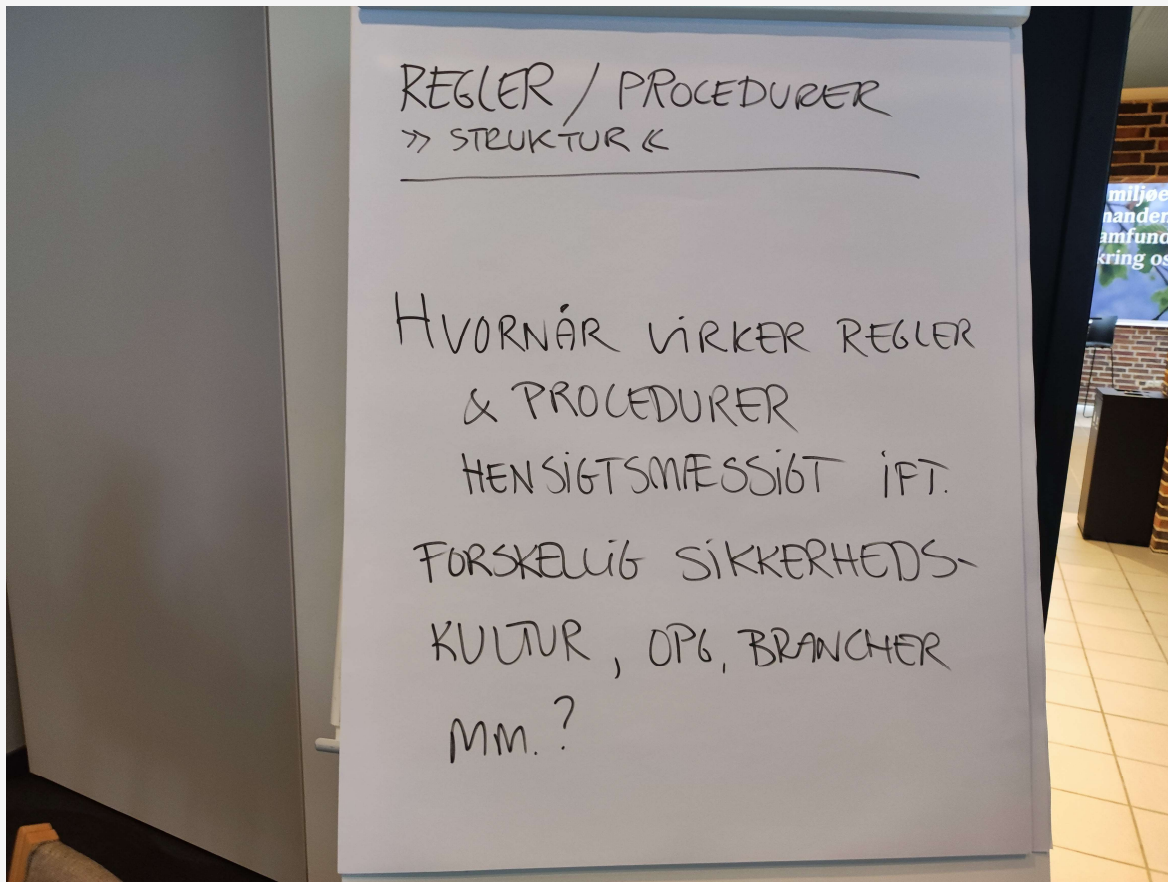 REGLER / PROCEDURER
» STRUKTUR «
HVORNÅR VIRKER REGLER
& PROCEDURER
HENSIGTSMÆSSIGT IFT.
FORSKELLIG SIKKERHEDS-
KULTUR, OPG, BRANCHER
MM.?
miljøe
nanden
amfund
kring os